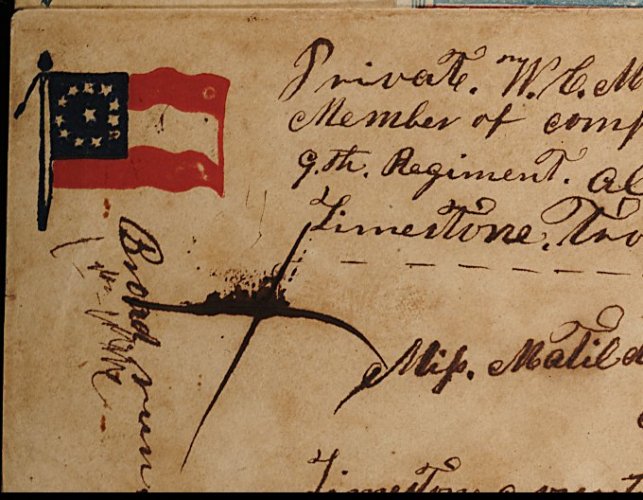 Private. Wm. C. M
Member of comp
9.th. Regiment. Al
Limestone. Tro
Miss. Matild
Broad run
Limestone